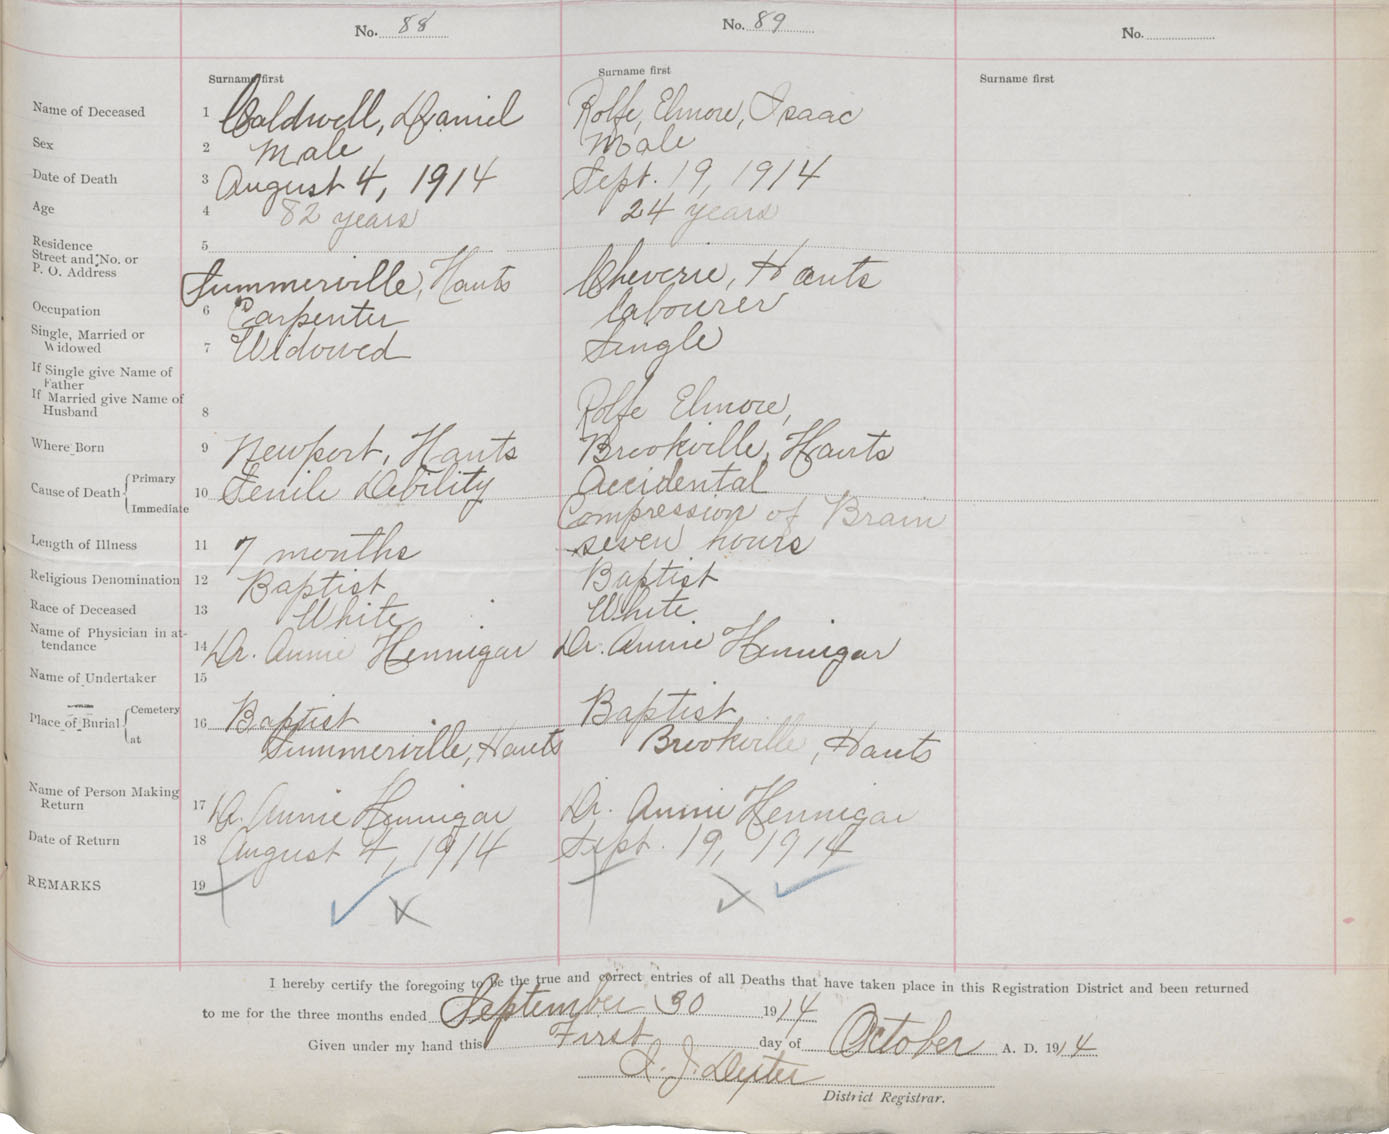 No. 88 No. 89 No.
Surname first Surname first Surname first
Name of Deceased 1 Caldwell, Daniel Rolfe, Elmore, Isaac
Sex 2 Male Male
Date of Death 3 August 4, 1914 Sept. 19, 1914
Age 4 82 years 24 years
Residence 5
Street and No. or
P. O. Address Summerville, Hants Cheverie, Hants
Occupation 6 Carpenter labourer
Single, Married or
Widowed 7 Widowed Single
If Single give Name of
Father
If Married give Name of
Husband 8 Rolfe Elmore,
Where Born 9 Newport, Hants Brookville, Hants
Cause of Death Primary 10 Senile Debility Accidental
Immediate Compression of Brain
Length of Illness 11 7 months seven hours
Religious Denomination 12 Baptist Baptist
Race of Deceased 13 White White
Name of Physician in at-
tendance 14 Dr. Annie Hennigar Dr. Annie Hennigar
Name of Undertaker 15
Place of Burial Cemetery 16 Baptist Baptist
at Summerville, Hants Brookville, Hants
Name of Person Making
Return 17 Dr. Annie Hennigar Dr. Annie Hennigar
Date of Return 18 August 4, 1914 Sept. 19, 1914
REMARKS 19
I hereby certify the foregoing to be the true and correct entries of all Deaths that have taken place in this Registration District and been returned
to me for the three months ended September 30 1914
Given under my hand this First day of October A. D. 1914
J. Dexter
District Registrar.